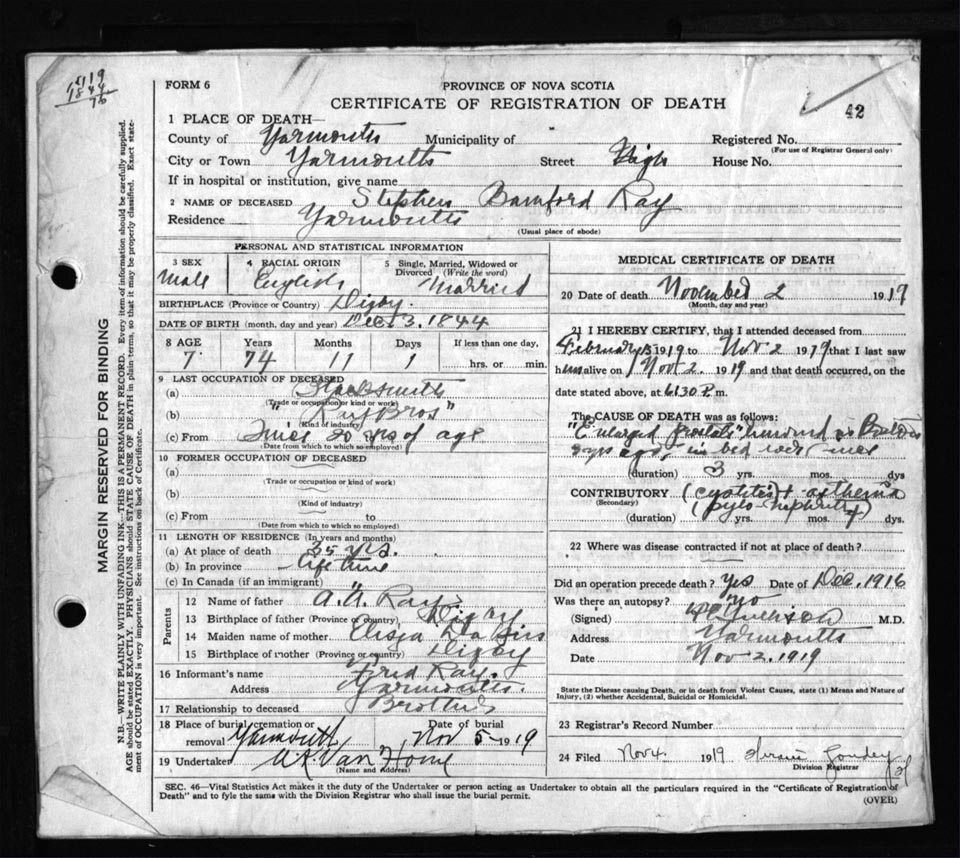 1919
1844
76
FORM 6
PROVINCE OF NOVA SCOTIA
CERTIFICATE OF REGISTRATION OF DEATH
42
1 PLACE OF DEATH—
County of Yarmouth Municipality of Registered No.
(For use of Registrar General only)
City or Town Yarmouth Street High House No.
If in hospital or institution, give name
2 NAME OF DECEASED Stephen Bamford Ray
Residence Yarmouth
(Usual place of abode)
PERSONAL AND STATISTICAL INFORMATION
3 SEX 4 RACIAL ORIGIN 5 Single, Married, Widowed or Divorced (Write the word)
Male English Married
BIRTHPLACE (Province or Country) Digby
DATE OF BIRTH (month, day and year) Dec 3. 1844
8 AGE Years Months Days If less than one day,
7 74 11 1 hrs. or min.
9 LAST OCCUPATION OF DECEASED
(a)
(Trade or occupation or kind of work)
(b) "Ray Bros"
(Kind of industry)
(c) From Since 20 yrs of age
(Date from which to which so employed)
10 FORMER OCCUPATION OF DECEASED
(a)
(Trade or occupation or kind of work)
(b)
(Kind of industry)
(c) From to
(Date from which to which so employed)
11 LENGTH OF RESIDENCE (In years and months)
(a) At place of death 35 yrs.
(b) In province Life time
(c) In Canada (if an immigrant) "
Parents
12 Name of father Ray
13 Birthplace of father (Province or country) Digby
14 Maiden name of mother
15 Birthplace of mother (Province or country) Digby
16 Informant's name Fred Ray
Address Yarmouth.
17 Relationship to deceased Brother
18 Place of burial, cremation or removal Yarmouth Date of burial Nov 5 1919
19 Undertaker Van Horne
(Name and Address)
MEDICAL CERTIFICATE OF DEATH
20 Date of death November 2 1919
(Month, day and year)
21 I HEREBY CERTIFY, that I attended deceased from
February 1919 to Nov 2 1919 that I last saw
him alive on Nov 2. 1919 and that death occurred, on
the date stated above, at 6.30 P. m.
The CAUSE OF DEATH was as follows:
"Enlarged prostate"
(duration) 3 yrs. mos. dys
CONTRIBUTORY (cystitis) + asthenia
(Secondary) (pyelo-nephritis)
(duration) yrs. mos. dys.
22 Where was disease contracted if not at place of death?
Did an operation precede death? Yes Date of Dec. 1916
Was there an autopsy? No
(Signed) M.D.
Address Yarmouth
Date Nov 2. 1919
State the Disease causing Death, or in death from Violent Causes, state (1) Means and Nature of
Injury, (2) whether Accidental, Suicidal or Homicidal.
23 Registrar's Record Number
24 Filed Nov 4. 1919
Division Registrar
SEC. 46—Vital Statistics Act makes it the duty of the Undertaker or person acting as Undertaker to obtain all the particulars required in the "Certificate of Registration of
Death" and to fyle the same with the Division Registrar who shall issue the burial permit.
(OVER)
MARGIN RESERVED FOR BINDING
N.B.—WRITE PLAINLY WITH UNFADING INK—THIS IS A PERMANENT RECORD. Every item of information should be carefully supplied.
AGE should be stated EXACTLY. PHYSICIANS should STATE CAUSE OF DEATH in plain terms, so that it may be properly classified. Exact state-
ment of OCCUPATION is very important. See instructions on back of Certificate.